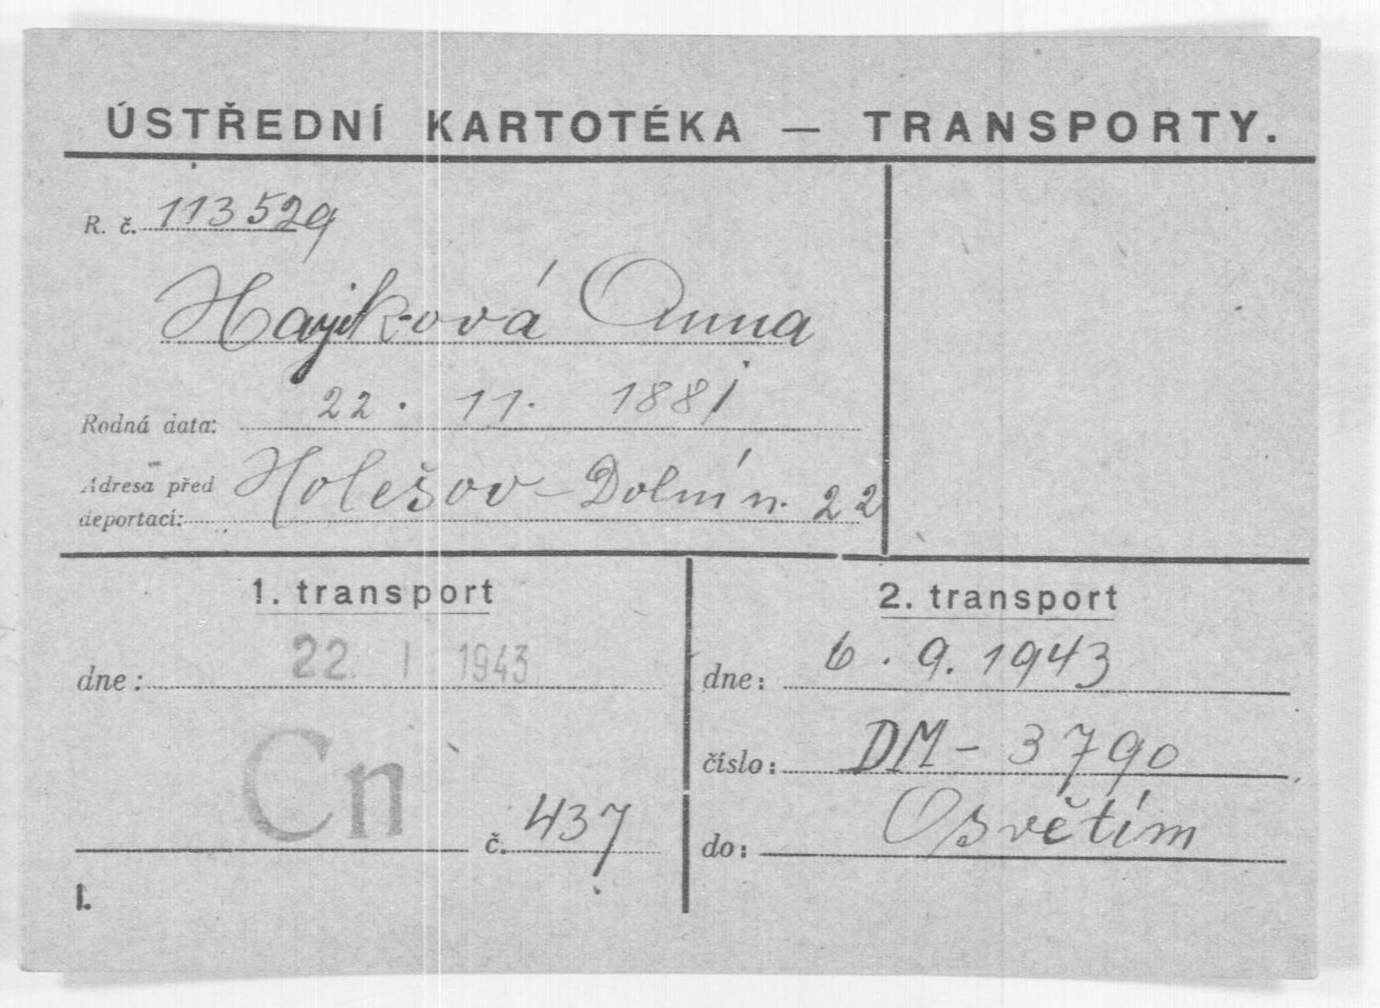 ÚSTŘEDNÍ KARTOTÉKA — TRANSPORTY.
R. č. 113529
Hajková Anna
Rodná data: 22. 11. 1881
Adresa před
deportací: Holešov - Dolní n. 22
1. transport
dne: 22. I 1943
Cn
č. 437
2. transport
dne: 6. 9. 1943
číslo: DM - 3790
do: Osvětím
I.